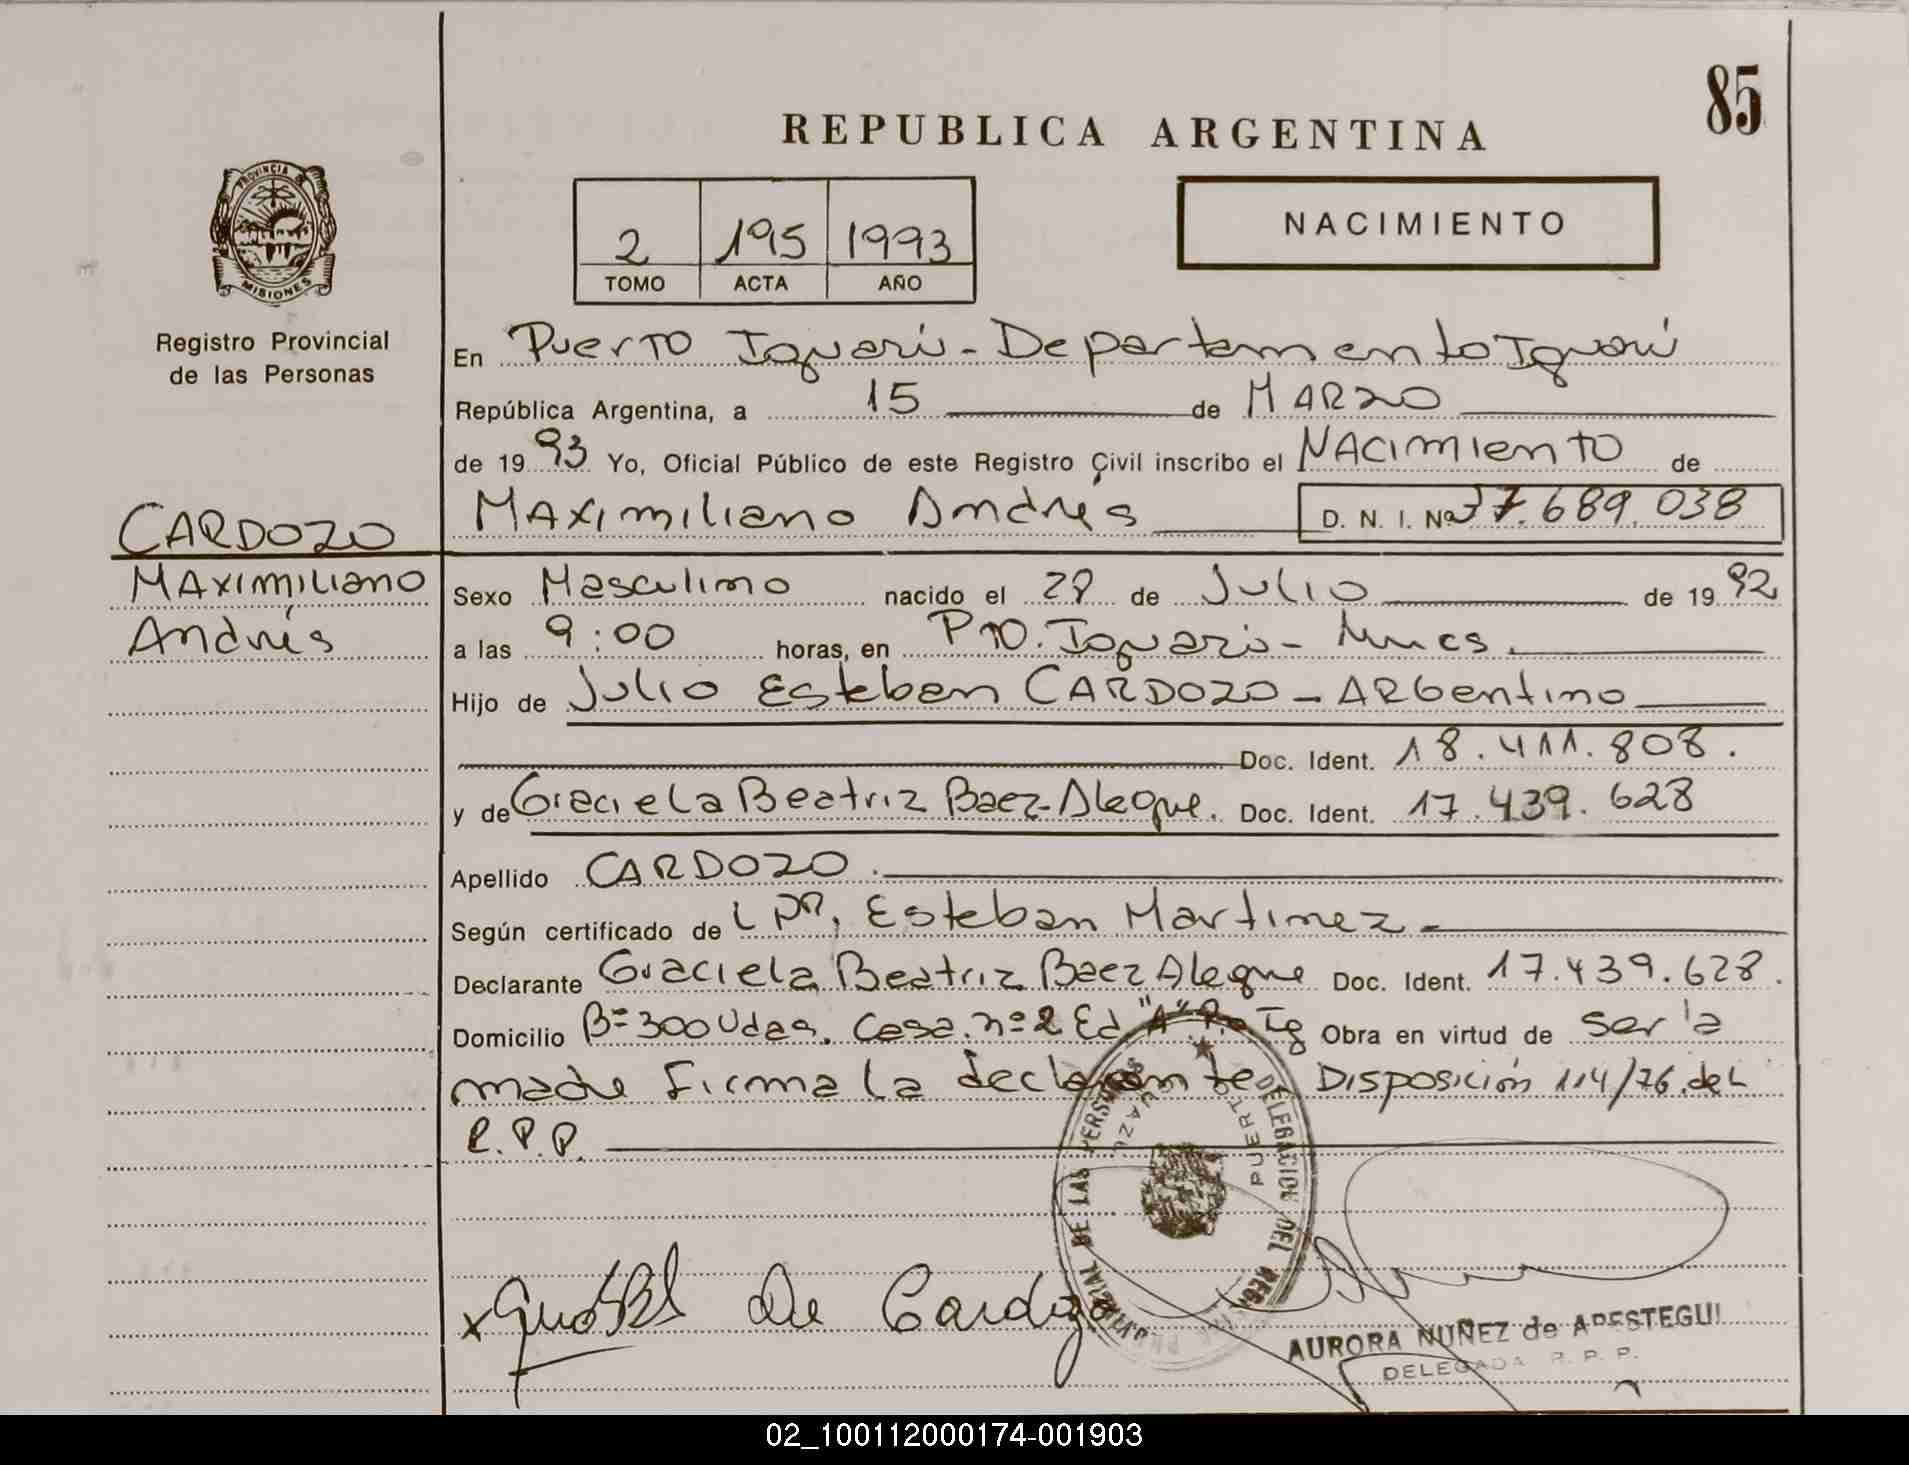 85
REPUBLICA ARGENTINA
PROVINCIA DE
MISIONES
Registro Provincial
de las Personas
2 195 1993
TOMO ACTA AÑO
NACIMIENTO
En Puerto Iguazú - Departamento Iguazú
República Argentina, a 15 de MARZO
de 1993 Yo, Oficial Público de este Registro Civil inscribo el NACimiento de
MAXimiliano Andrés D. N. I. Nº 37.689.038
CARDOZO
MAXimiliano
Andrés
Sexo Masculino nacido el 28 de Julio de 1992
a las 9:00 horas, en Pto. Iguazú - Mnes.
Hijo de Julio Esteban CARDOZO - ARgentino
Doc. Ident. 18.411.808.
y de Graciela Beatriz Baez-Alegre. Doc. Ident. 17.439.628
Apellido CARDOZO.
Según certificado de Dr. Esteban Martinez
Declarante Graciela Beatriz Baez Alegre Doc. Ident. 17.439.628.
Domicilio Bº 300 Vdas. Casa nº 2 Ed "A" Pto Ig Obra en virtud de ser la
madre firma la declarante Disposición 114/76 del
R.P.P.
DELEGACION DEL REGISTRO PROVINCIAL DE LAS PERSONAS
PUERTO IGUAZU
De Cardozo
AURORA NUÑEZ de APESTEGUI
DELEGADA R. P. P.
02_100112000174-001903